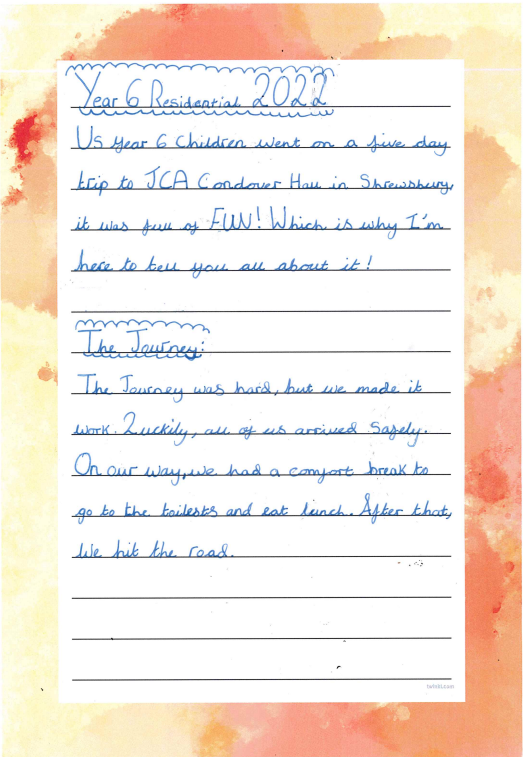 Year 6 Residential 2022
Us Year 6 Children went on a five day
trip to JCA Condover Hall in Shrewsbury,
it was full of FUN! Which is why I'm
here to tell you all about it!
The Journey:
The Journey was hard, but we made it
work. Luckily, all of us arrived Safely.
On our way, we had a comfort break to
go to the toilests and eat lunch. After that,
We hit the road.
twinkl.com